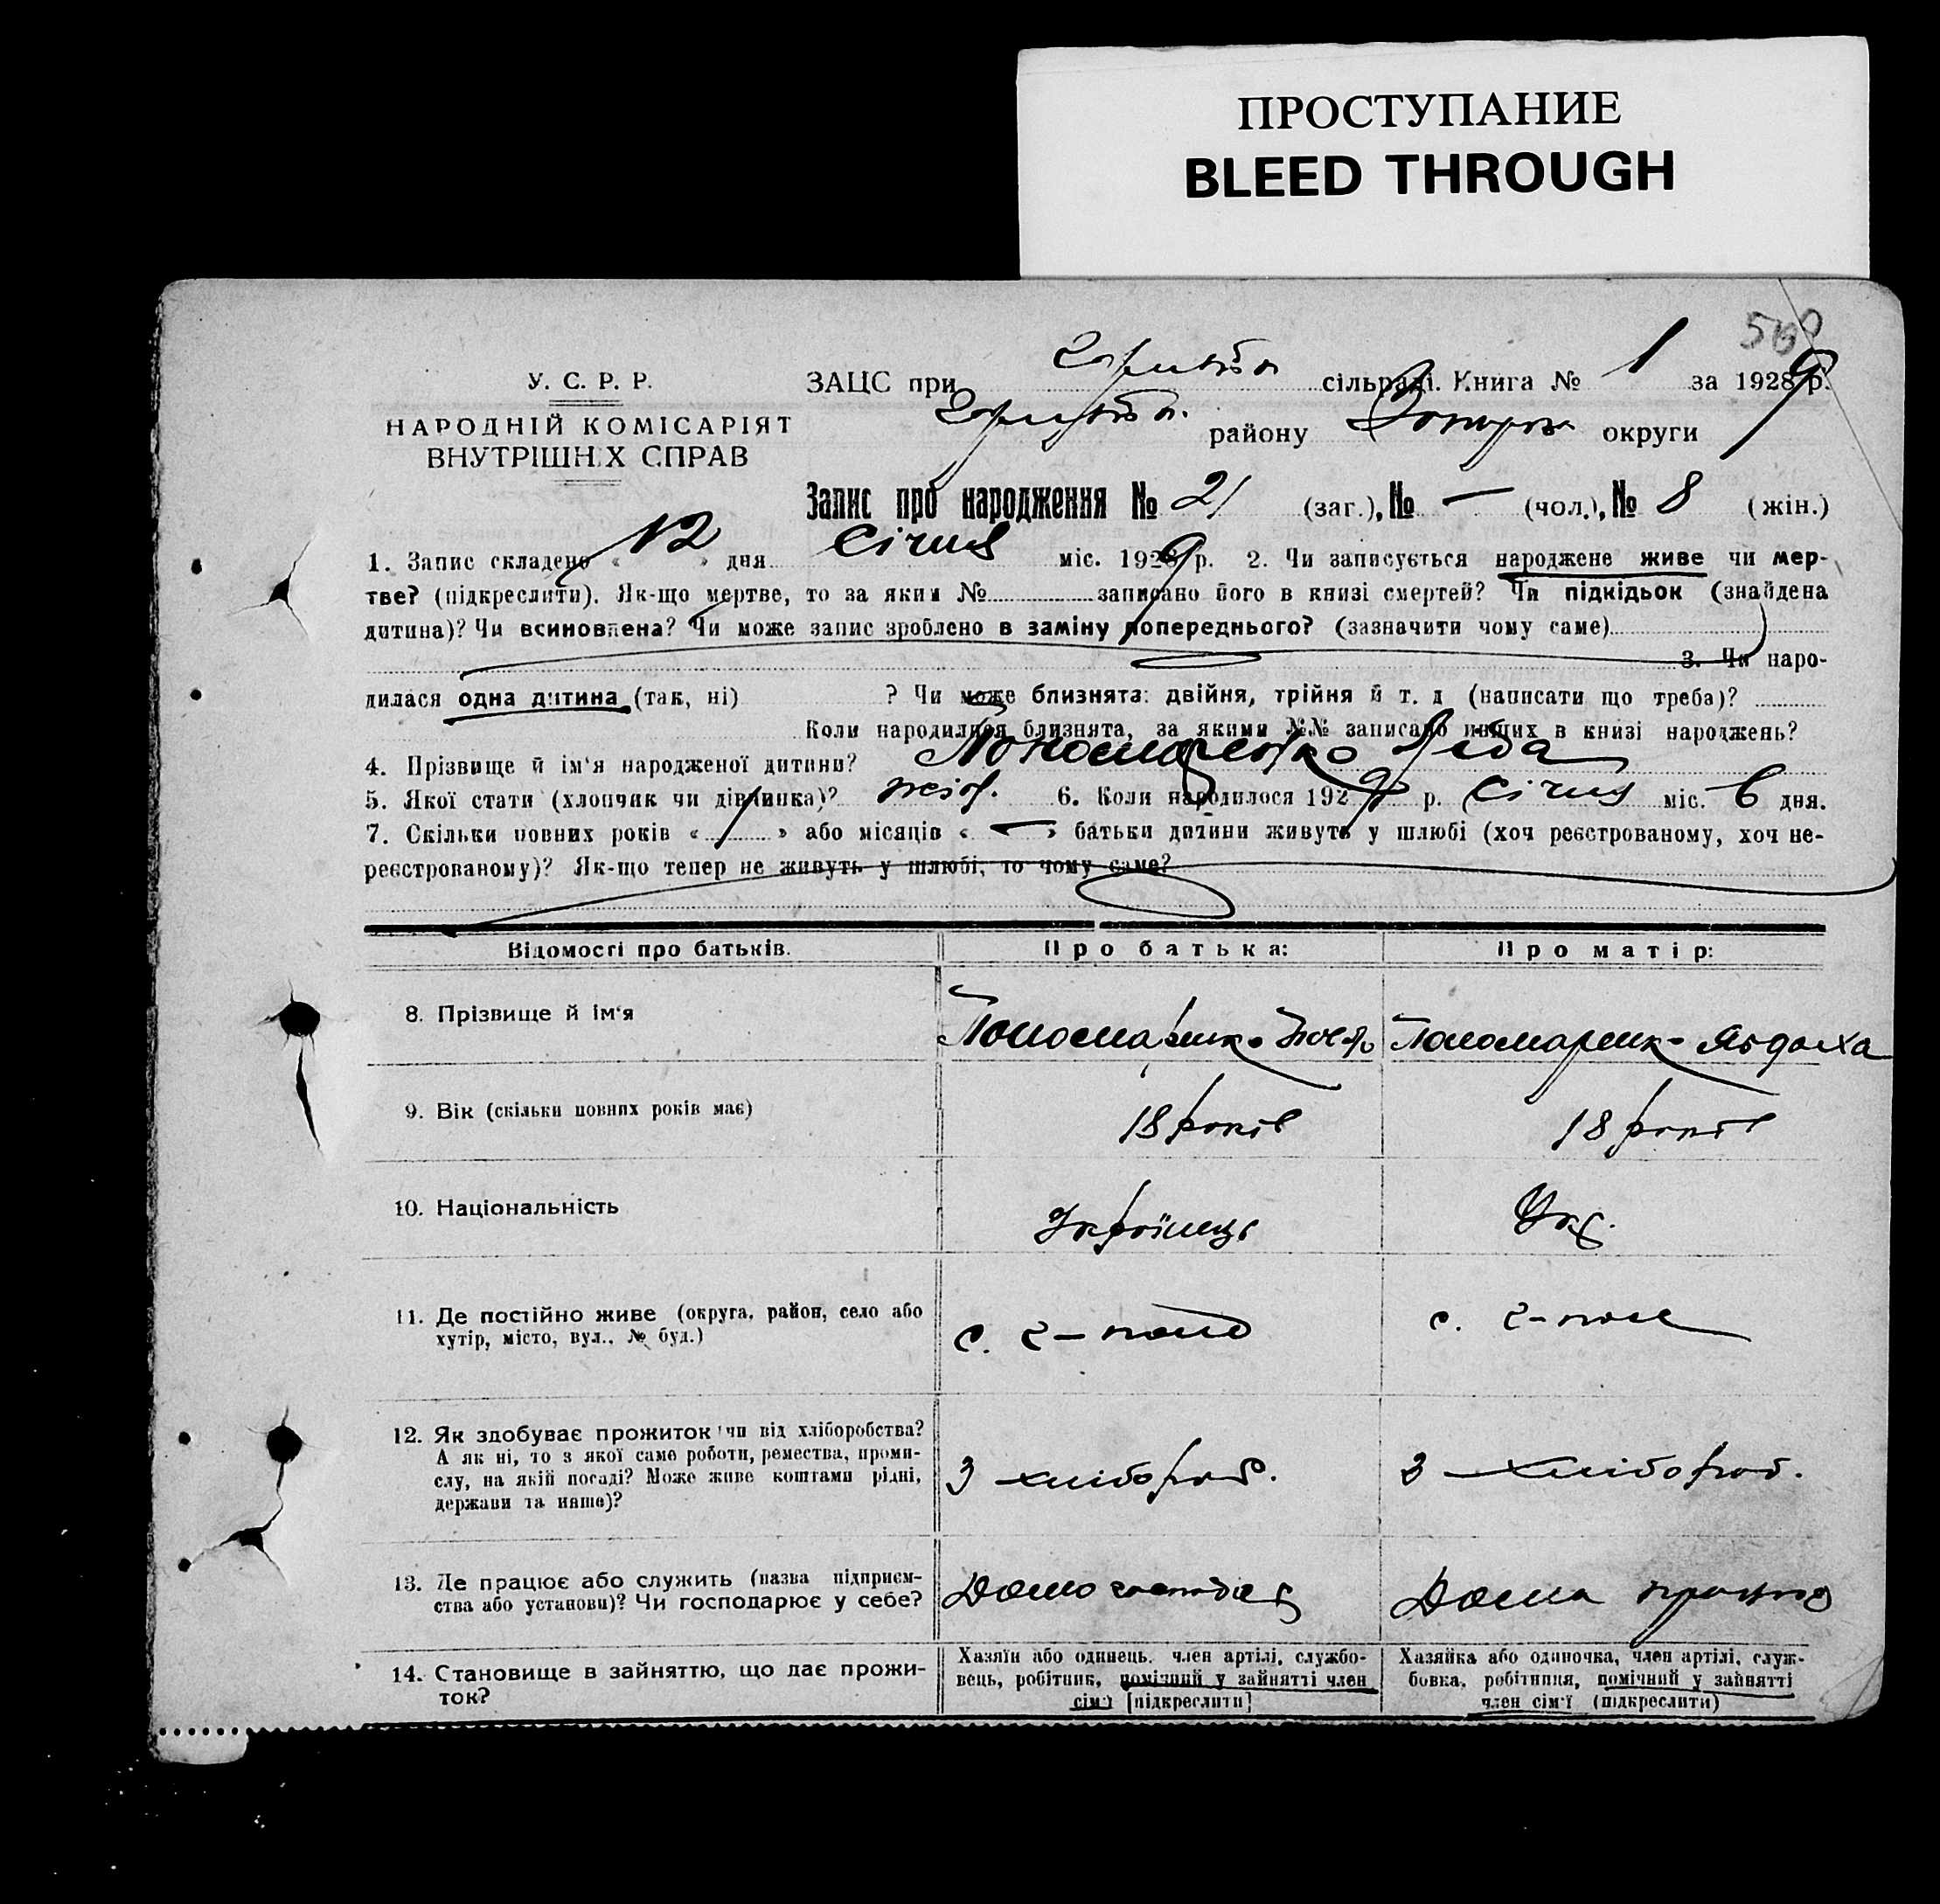 ПРОСТУПАНИЕ
BLEED THROUGH
У. С. Р. Р.
НАРОДНІЙ КОМІСАРІЯТ
ВНУТРІШНІХ СПРАВ
ЗАЦС при сільраді. Книга № 1 за 1928 9 р.
району округи
Запис про народження № 21 (заг.), № — (чол.), № 8 (жін.)
1. Запис складено « 12 » дня Січня міс. 1928 9 р. 2. Чи записується народжене живе чи мер-
тве? (підкреслити). Як-що мертве, то за яким № записано його в книзі смертей? Чи підкідьок (знайдена
дитина)? Чи всиновлена? Чи може запис зроблено в заміну попереднього? (зазначити чому саме)
3. Чи наро-
дилася одна дитина (так, ні) ? Чи може близнята: двійня, трійня й т. д (написати що треба)?
Коли народилися близнята, за якими №№ записано инших в книзі народжень?
4. Прізвище й ім‘я народженої дитини? Пономаренко Ліда
5. Якої стати (хлопчик чи дівчинка)? жіноч. 6. Коли народилося 1929 р. Січня міс. 6 дня.
7. Скільки повних років « 1 » або місяців « — » батьки дитини живуть у шлюбі (хоч реєстрованому, хоч не-
реєстрованому)? Як-що тепер не живуть у шлюбі, то чому саме?
Відомості про батьків. Про батька: Про матір:
8. Прізвище й ім‘я Пономаренко Пономаренко Явдоха
9. Вік (скільки повних років має) 18 років 18 років
10. Національність Українець Укр.
11. Де постійно живе (округа, район, село або
хутір, місто, вул., № буд.) с. с.
12. Як здобуває прожиток чи від хліборобства?
А як ні, то з якої саме роботи, ремества, проми-
слу, на якій посаді? Може живе коштами рідні,
держави та инше)? З хлібороб. З хлібороб.
13. Де працює або служить (назва підприєм-
ства або установи)? Чи господарює у себе? Дома працює
14. Становище в зайняттю, що дає прожи-
ток?
Хазяїн або одинець, член артілі, службо-
вець, робітник, помічний у зайнятті член
сім‘ї [підкреслити]
Хазяйка або одиночка, член артілі, служ-
бовка, робітниця, помічний у зайнятті
член сім‘ї (підкреслити)